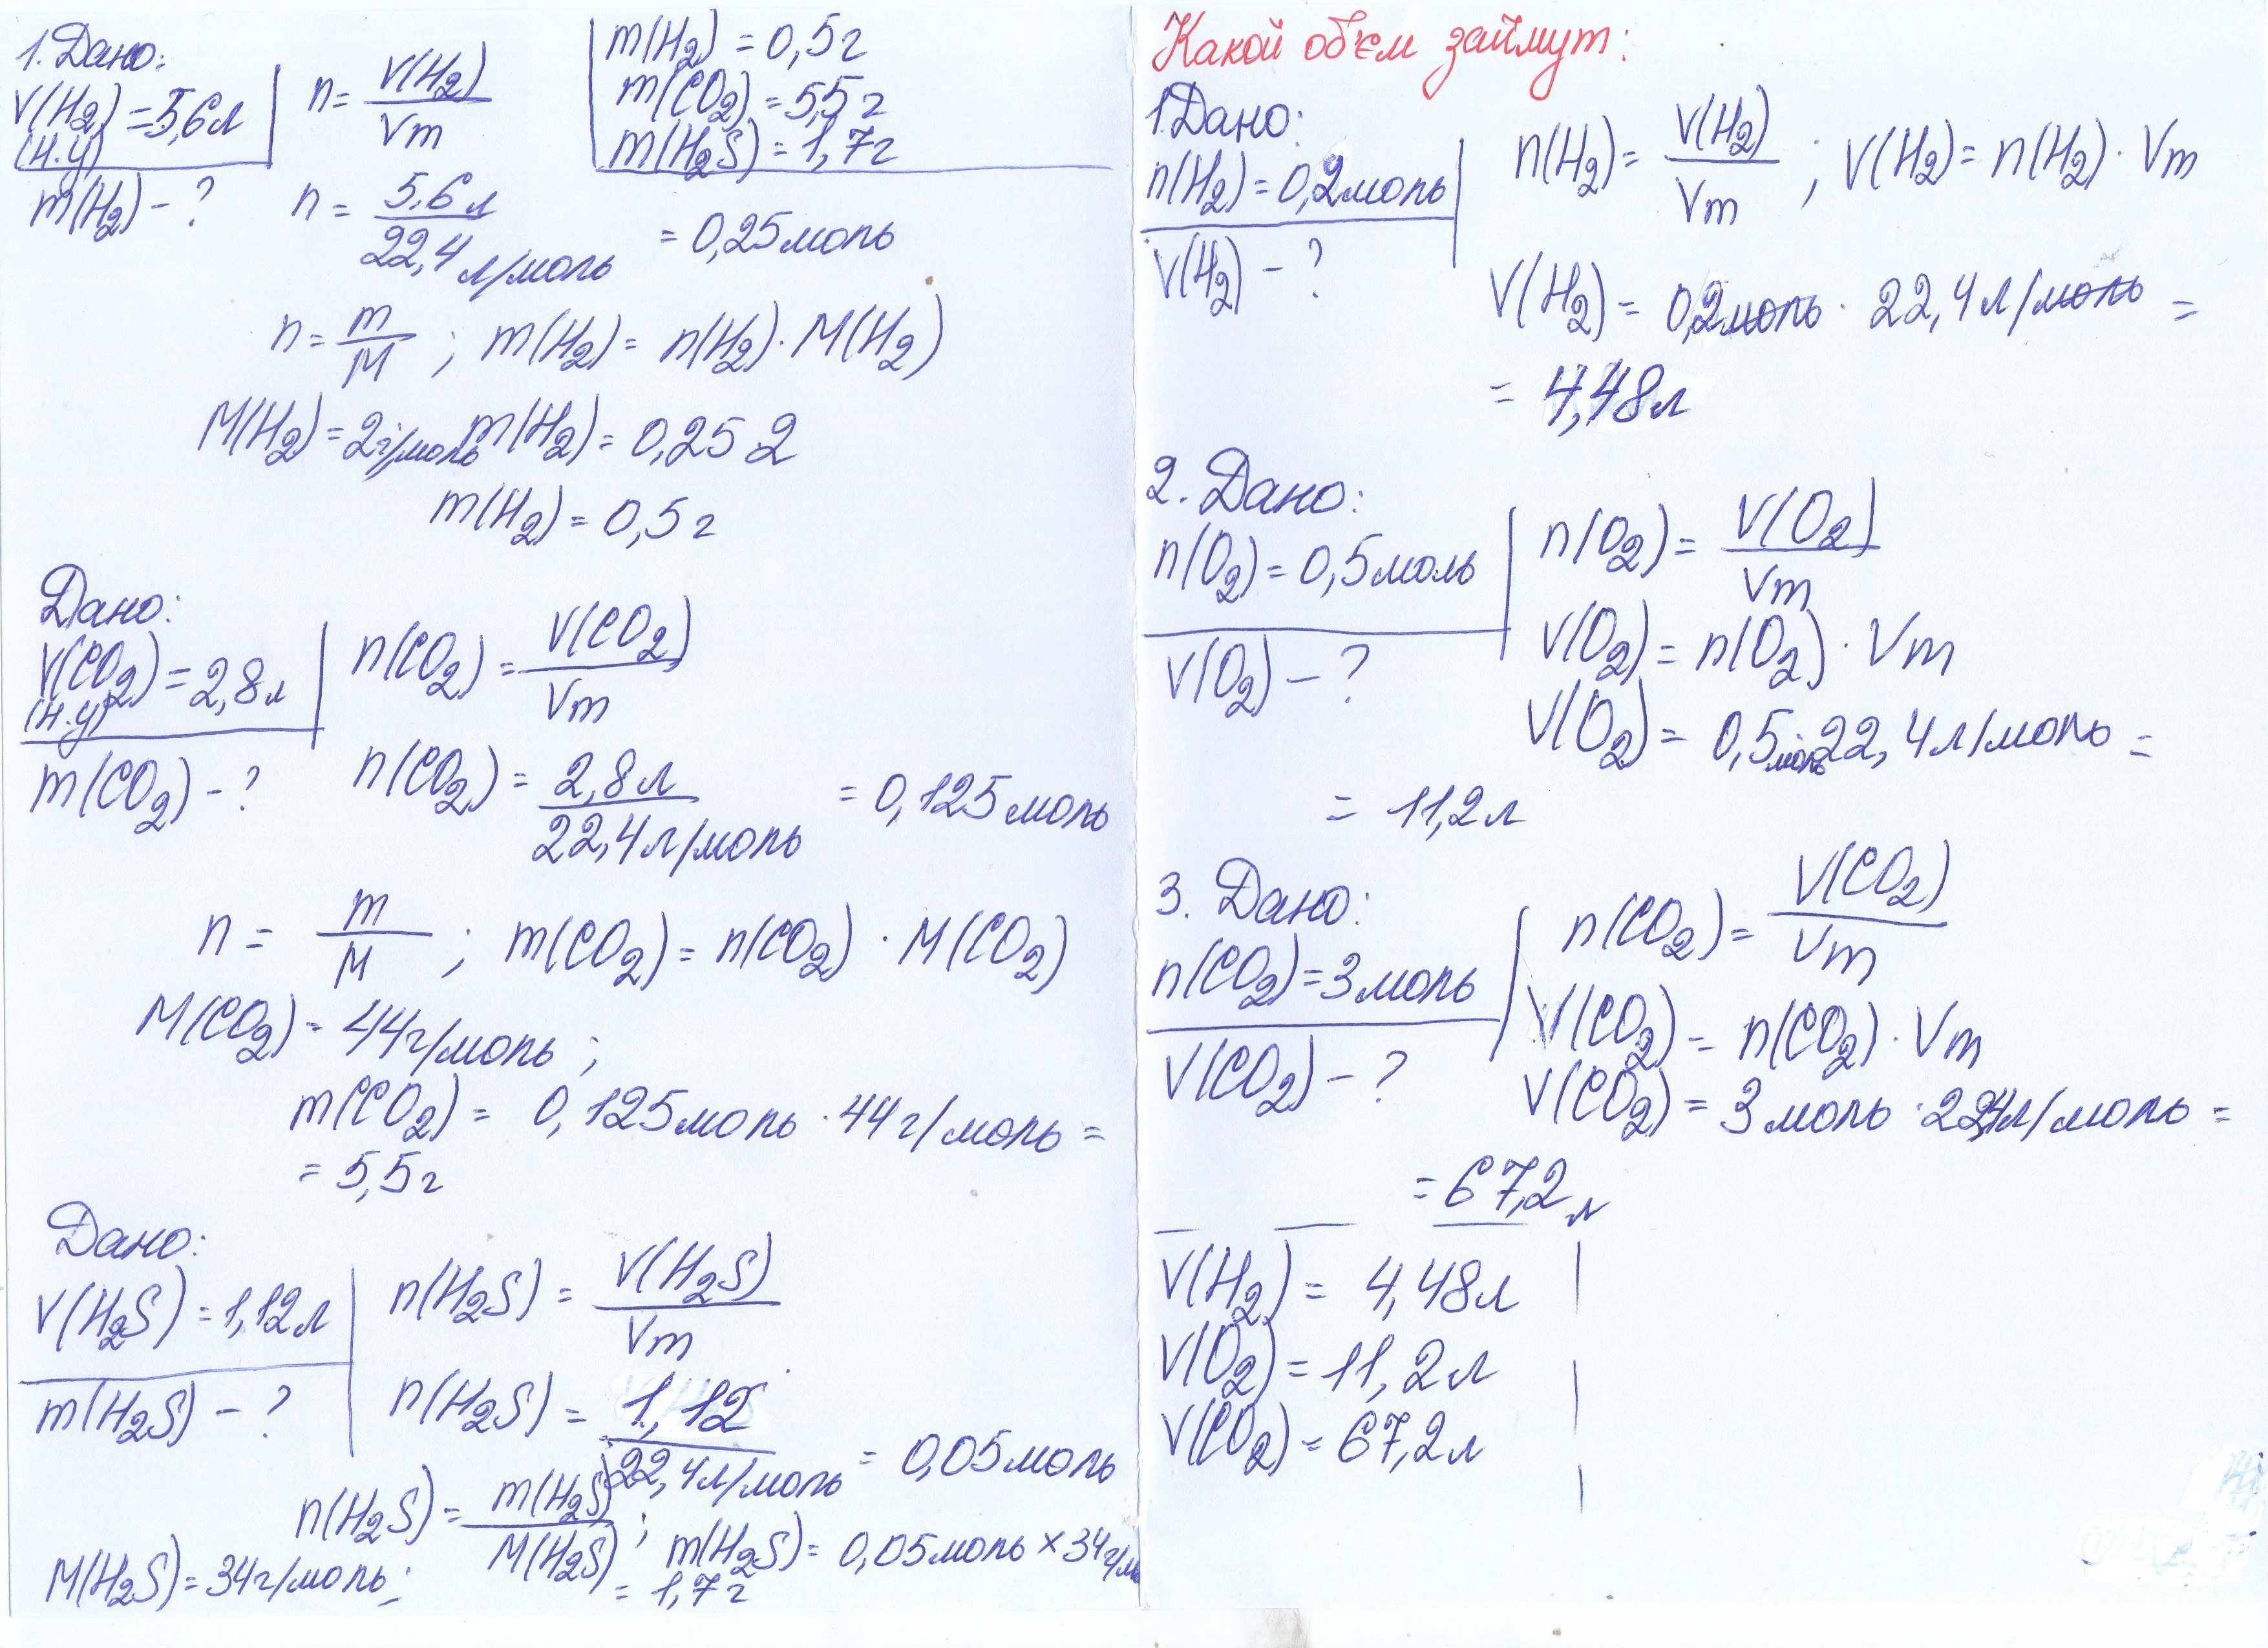 1. Дано:
V(H2) = 5,6 л
(н.у)
m(H2) - ?
n = V(H2) / Vm
n = 5,6 л / 22,4 л/моль = 0,25 моль
m(H2) = 0,5 г
m(CO2) = 5,5 г
m(H2S) = 1,7 г
n = m / M ; m(H2) = n(H2) · M(H2)
M(H2) = 2 г/моль m(H2) = 0,25 · 2
m(H2) = 0,5 г
Дано:
V(CO2) = 2,8 л
(н.у)
m(CO2) - ?
n(CO2) = V(CO2) / Vm
n(CO2) = 2,8 л / 22,4 л/моль = 0,125 моль
n = m / M ; m(CO2) = n(CO2) · M(CO2)
M(CO2) = 44 г/моль ;
m(CO2) = 0,125 моль · 44 г/моль =
= 5,5 г
Дано:
V(H2S) = 1,12 л
m(H2S) - ?
n(H2S) = V(H2S) / Vm
n(H2S) = 1,12 / 22,4 л/моль = 0,05 моль
n(H2S) = m(H2S) / M(H2S) ; m(H2S) = 0,05 моль × 34 г/мо
M(H2S) = 34 г/моль ;
= 1,7 г
Какой объем займут:
1. Дано:
n(H2) = 0,2 моль
V(H2) - ?
n(H2) = V(H2) / Vm ; V(H2) = n(H2) · Vm
V(H2) = 0,2 моль · 22,4 л/моль =
= 4,48 л
2. Дано:
n(O2) = 0,5 моль
V(O2) - ?
n(O2) = V(O2) / Vm
V(O2) = n(O2) · Vm
V(O2) = 0,5 моль · 22,4 л/моль =
= 11,2 л
3. Дано:
n(CO2) = 3 моль
V(CO2) - ?
n(CO2) = V(CO2) / Vm
V(CO2) = n(CO2) · Vm
V(CO2) = 3 моль · 22,4 л/моль =
= 67,2 л
V(H2) = 4,48 л
V(O2) = 11,2 л
V(CO2) = 67,2 л